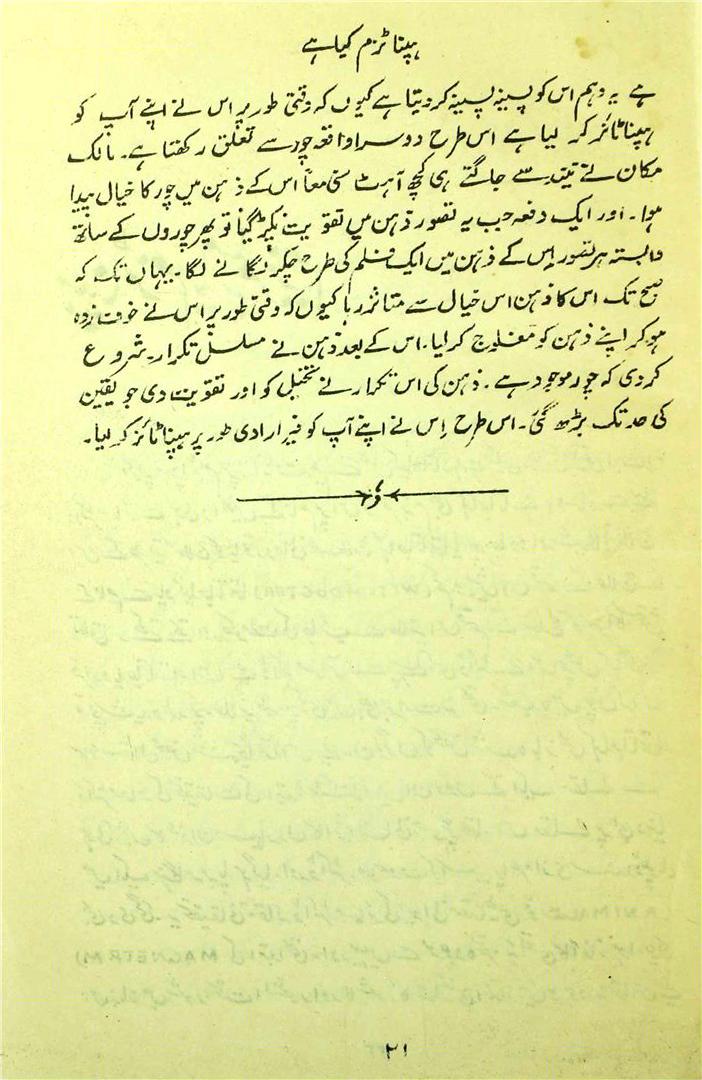 ہپناٹزم کیا ہے
ہے یہ وہم اس کو پسینہ پسینہ کر دیتا ہے کیوں کہ وقتی طور پر اس نے اپنے آپ کو
ہپناٹائز کر لیا ہے اس طرح دوسرا واقعہ چور سے تعلق رکھتا ہے۔ مالک
مکان نے نیند سے جاگتے ہی کچھ آہٹ سنی معاً اس کے ذہن میں چور کا خیال پیدا
ہوا۔ اور ایک دفعہ جب یہ تصور ذہن میں تقویت پکڑ گیا تو پھر چوروں کے ساتھ
وابستہ ہر تصور اس کے ذہن میں ایک فلم کی طرح چکر لگانے لگا۔ یہاں تک کہ
صبح تک اس کا ذہن اس خیال سے متاثر رہا کیوں کہ وقتی طور پر اس نے خوف زدہ
ہو کر اپنے ذہن کو مفلوج کر لیا۔ اس کے بعد ذہن نے مسلسل تکرار شروع
کر دی کہ چور موجود ہے۔ ذہن کی اس تکرار نے تخیل کو اور تقویت دی جو یقین
کی حد تک بڑھ گئی۔ اس طرح اس نے اپنے آپ کو غیر ارادی طور پر ہپناٹائز کر لیا۔
۲۱